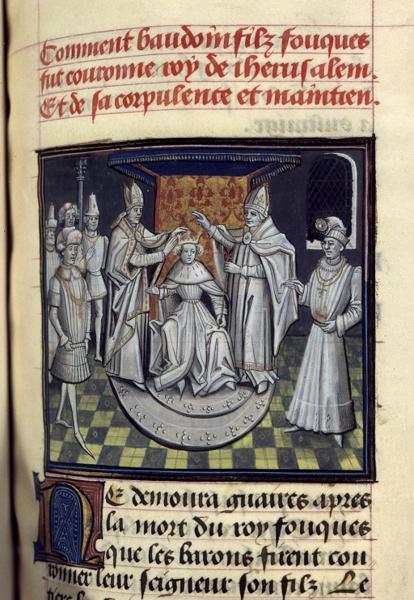 Comment baudoin filz fouques
fut couronne roy de iherusalem.
Et de sa corpulence et maintien.
Ne demoura guaires apres
la mort du roy fouques
que les barons firent cou
ronner leur seigneur son filz Le